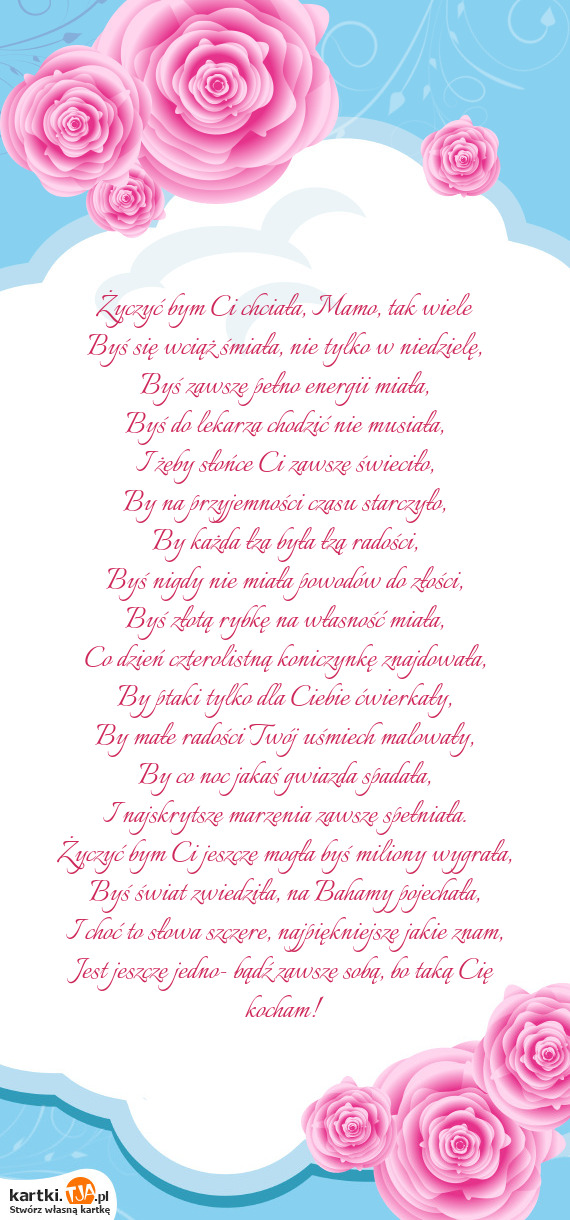 Życzyć bym Ci chciała, Mamo, tak wiele
Byś się wciąż śmiała, nie tylko w niedzielę,
Byś zawsze pełno energii miała,
Byś do lekarza chodzić nie musiała,
I żeby słońce Ci zawsze świeciło,
By na przyjemności czasu starczyło,
By każda łza była łzą radości,
Byś nigdy nie miała powodów do złości,
Byś złotą rybkę na własność miała,
Co dzień czterolistną koniczynkę znajdowała,
By ptaki tylko dla Ciebie ćwierkały,
By małe radości Twój uśmiech malowały,
By co noc jakaś gwiazda spadała,
I najskrytsze marzenia zawsze spełniała.
Życzyć bym Ci jeszcze mogła byś miliony wygrała,
Byś świat zwiedziła, na Bahamy pojechała,
I choć to słowa szczere, najpiękniejsze jakie znam,
Jest jeszcze jedno- bądź zawsze sobą, bo taką Cię
kocham!
kartki.TJA.pl
Stwórz własną kartkę